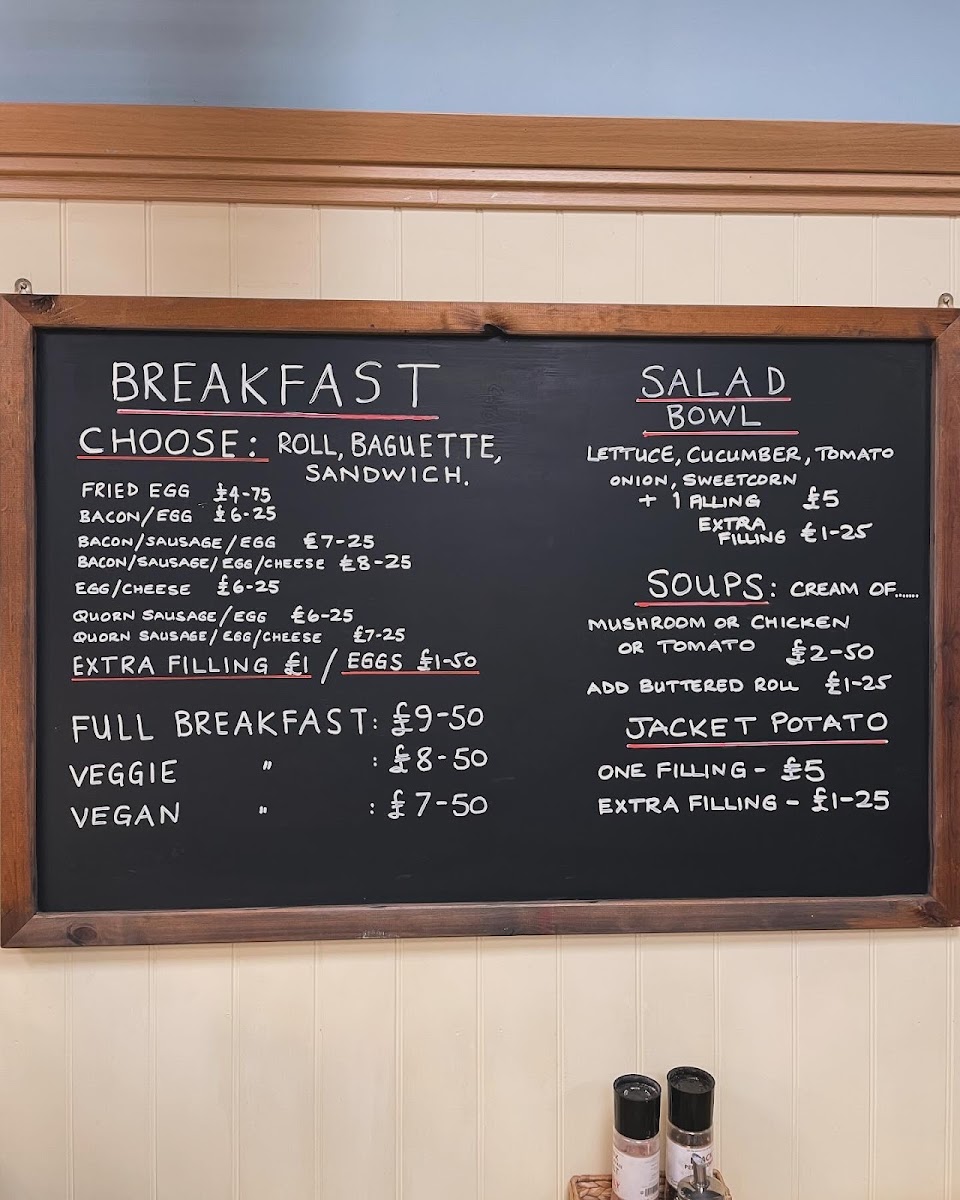 BREAKFAST
CHOOSE: ROLL, BAGUETTE,
SANDWICH.
FRIED EGG £4-75
BACON/EGG £6-25
BACON/SAUSAGE/EGG £7-25
BACON/SAUSAGE/EGG/CHEESE £8-25
EGG/CHEESE £6-25
QUORN SAUSAGE/EGG £6-25
QUORN SAUSAGE/EGG/CHEESE £7-25
EXTRA FILLING £1 / EGGS £1-50
FULL BREAKFAST: £9-50
VEGGIE " : £8-50
VEGAN " : £7-50
SALAD
BOWL
LETTUCE, CUCUMBER, TOMATO
ONION, SWEETCORN
+ 1 FILLING £5
EXTRA
FILLING £1-25
SOUPS: CREAM OF.......
MUSHROOM OR CHICKEN
OR TOMATO £2-50
ADD BUTTERED ROLL £1-25
JACKET POTATO
ONE FILLING - £5
EXTRA FILLING - £1-25